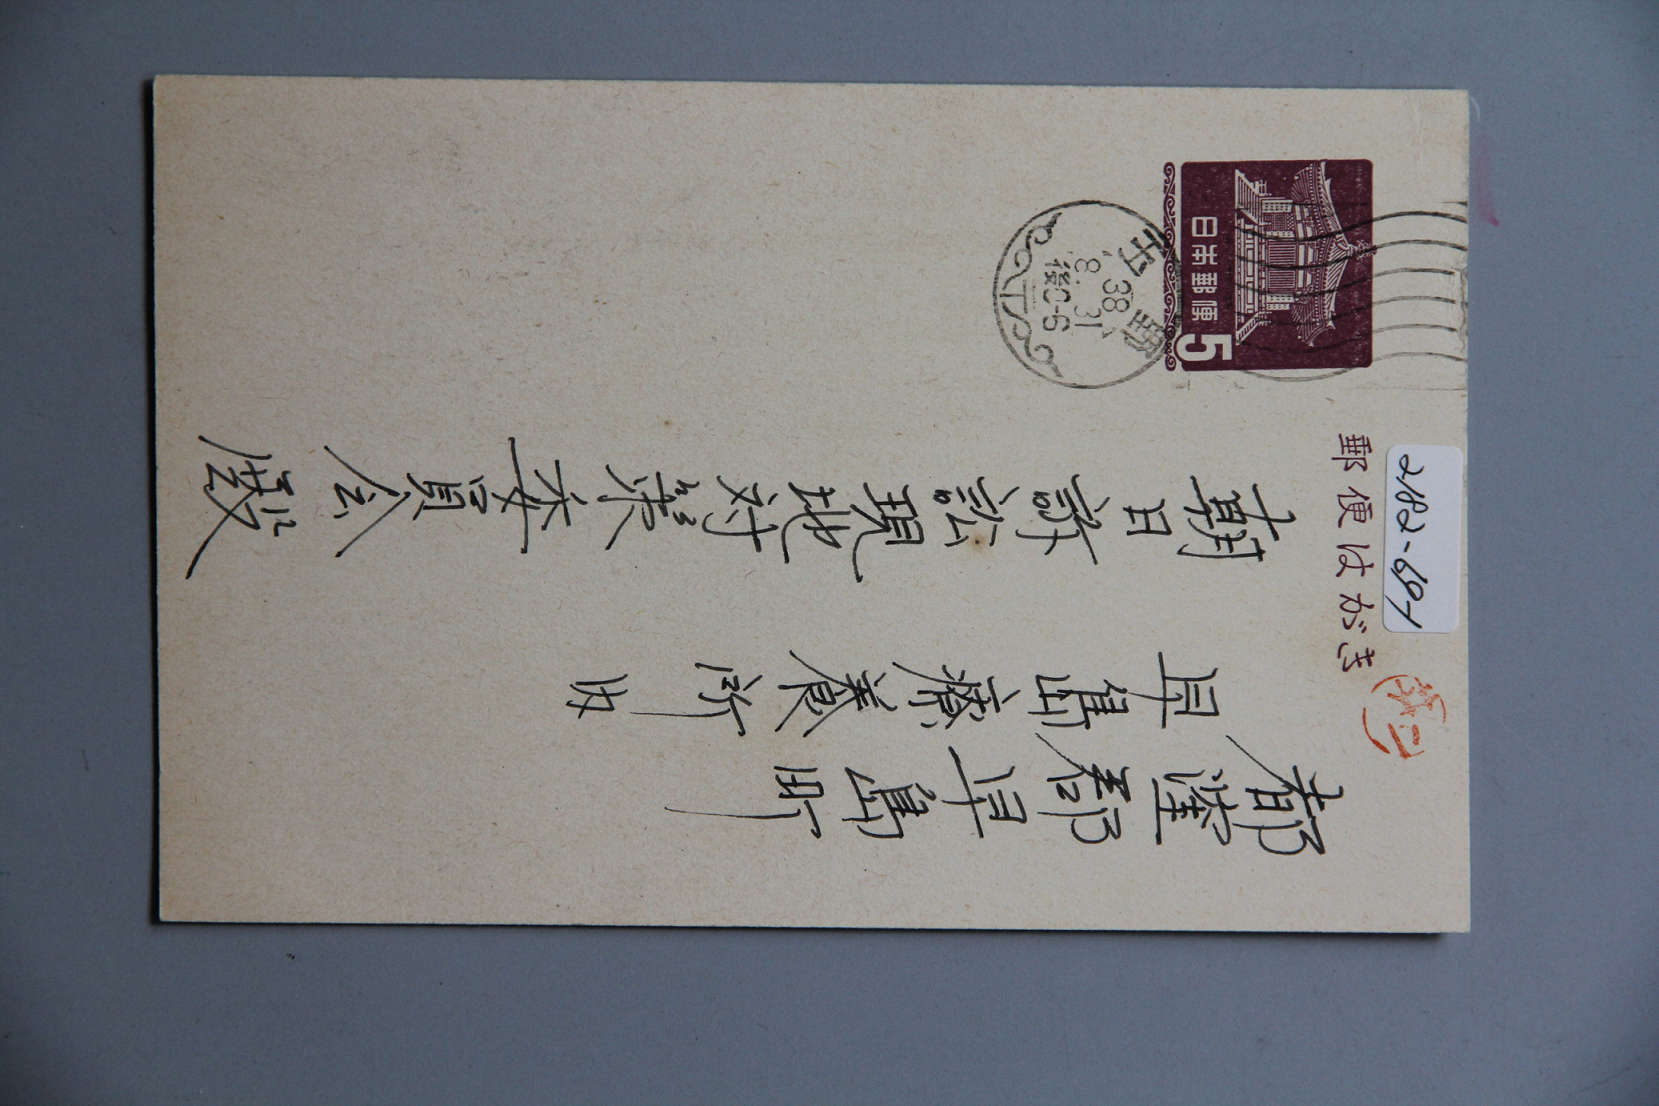 郵便はがき
2182-697
日本郵便
5
玉島
38
8.31
後0-6
都窪郡早島町
早島療養所内
朝日訴訟現地対策委員会
殿